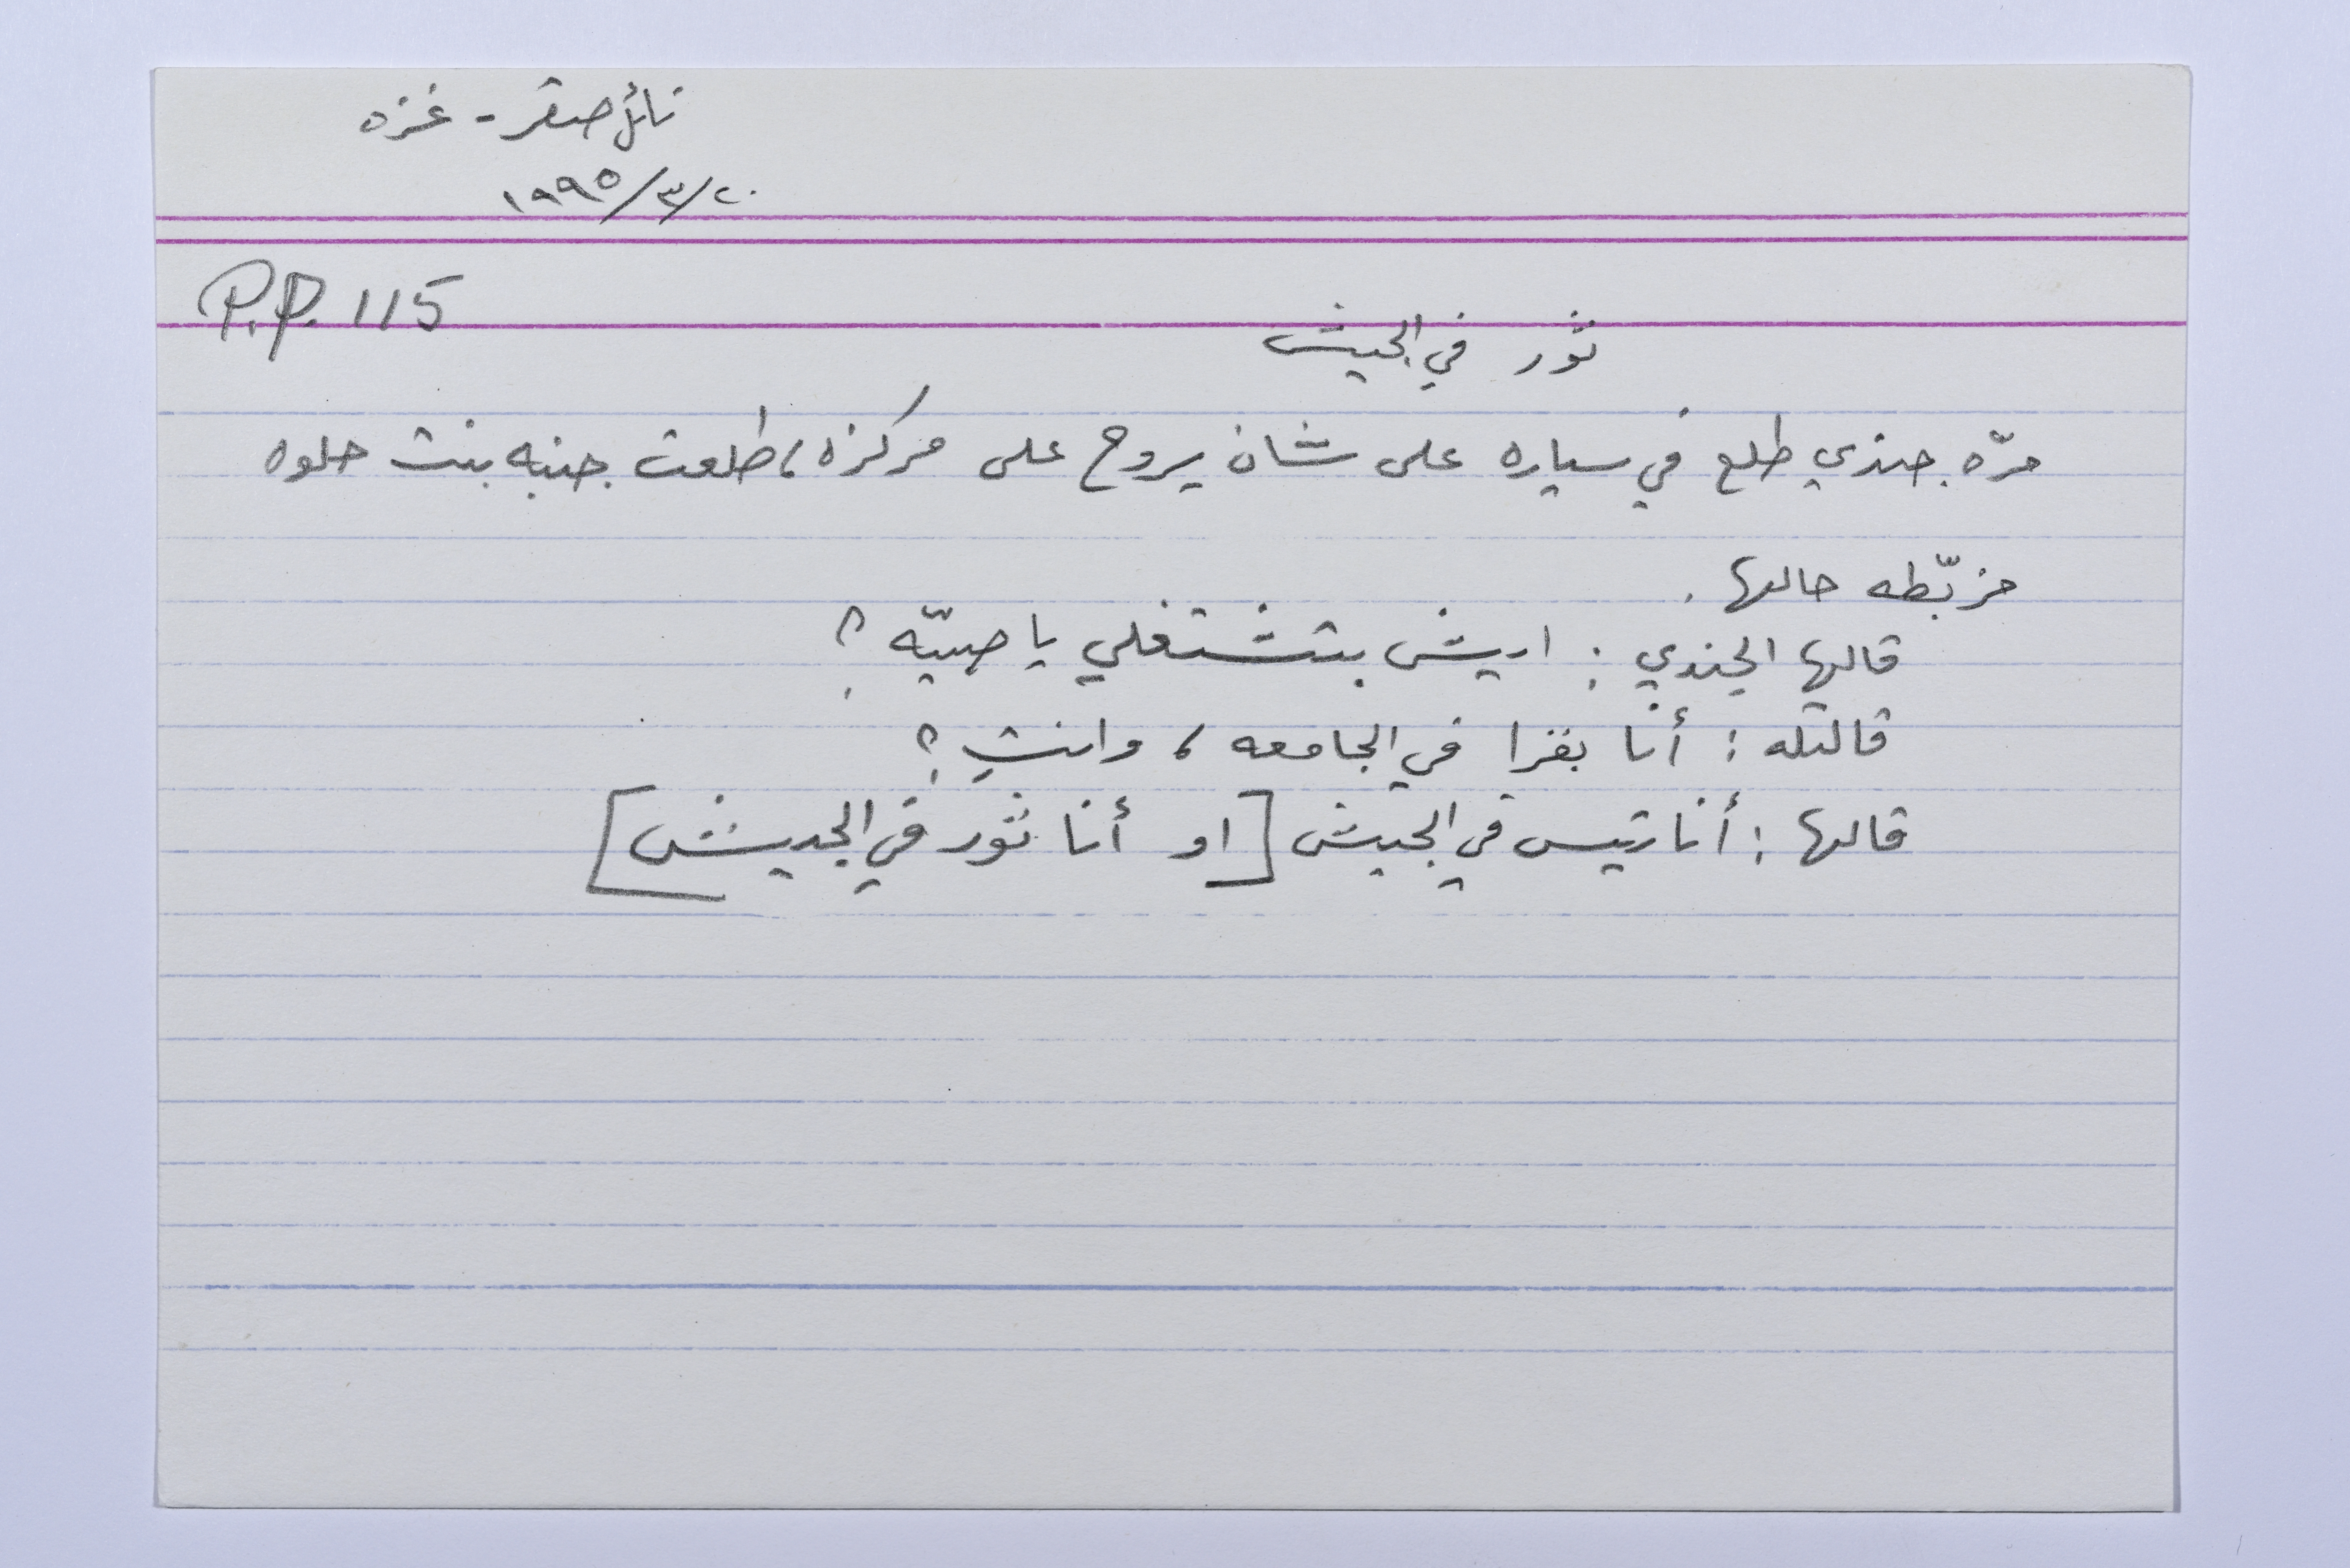 نائل صقر - غزه
٢٠/٣/١٩٩٥
P.P. 115
ثور في الجيش
مرّه جندي طلع في سياره على شان يروح على مركزه، طلعت جنبه بنت حلوه
مزبّطه حالها.
قالها الجندي: ايش بتشتغلي يا صبيّه؟
قالتله: أنا بقرا في الجامعه، وانتِ؟
قالها: أنا تيس في الجيش [او أنا ثور في الجيش]